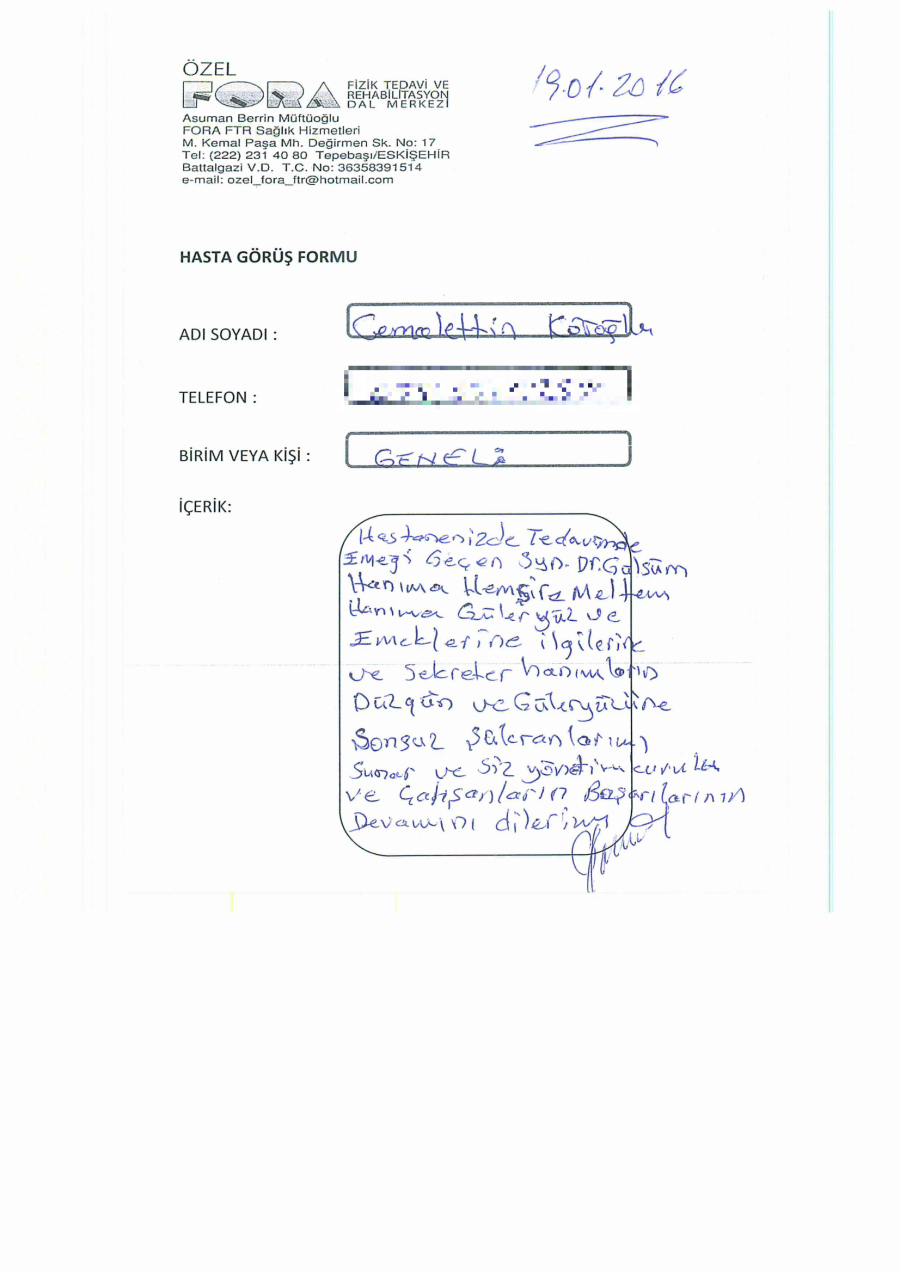 ÖZEL
FORA FİZİK TEDAVİ VE
REHABİLİTASYON
DAL MERKEZİ
Asuman Berrin Müftüoğlu
FORA FTR Sağlık Hizmetleri
M. Kemal Paşa Mh. Değirmen Sk. No: 17
Tel: (222) 231 40 80 Tepebaşı/ESKİŞEHİR
Battalgazi V.D. T.C. No: 36358391514
e-mail: ozel_fora_ftr@hotmail.com
19.01.2016
HASTA GÖRÜŞ FORMU
ADI SOYADI : Cemalettin
TELEFON :
BİRİM VEYA KİŞİ : GENEL
İÇERİK:
Hastanenizde Tedavimde
Emeği Geçen Syn. Dr. Gülsüm
Hanıma Hemşire Meltem
Hanıma Güleryüz ve
Emeklerine ilgilerine
ve Sekreter hanımların
Düzgün ve Güleryüzüne
Sonsuz Şükranlarımı
Sunar ve Siz yönetim kurulu
ve Çalışanların Başarılarının
Devamını dilerim